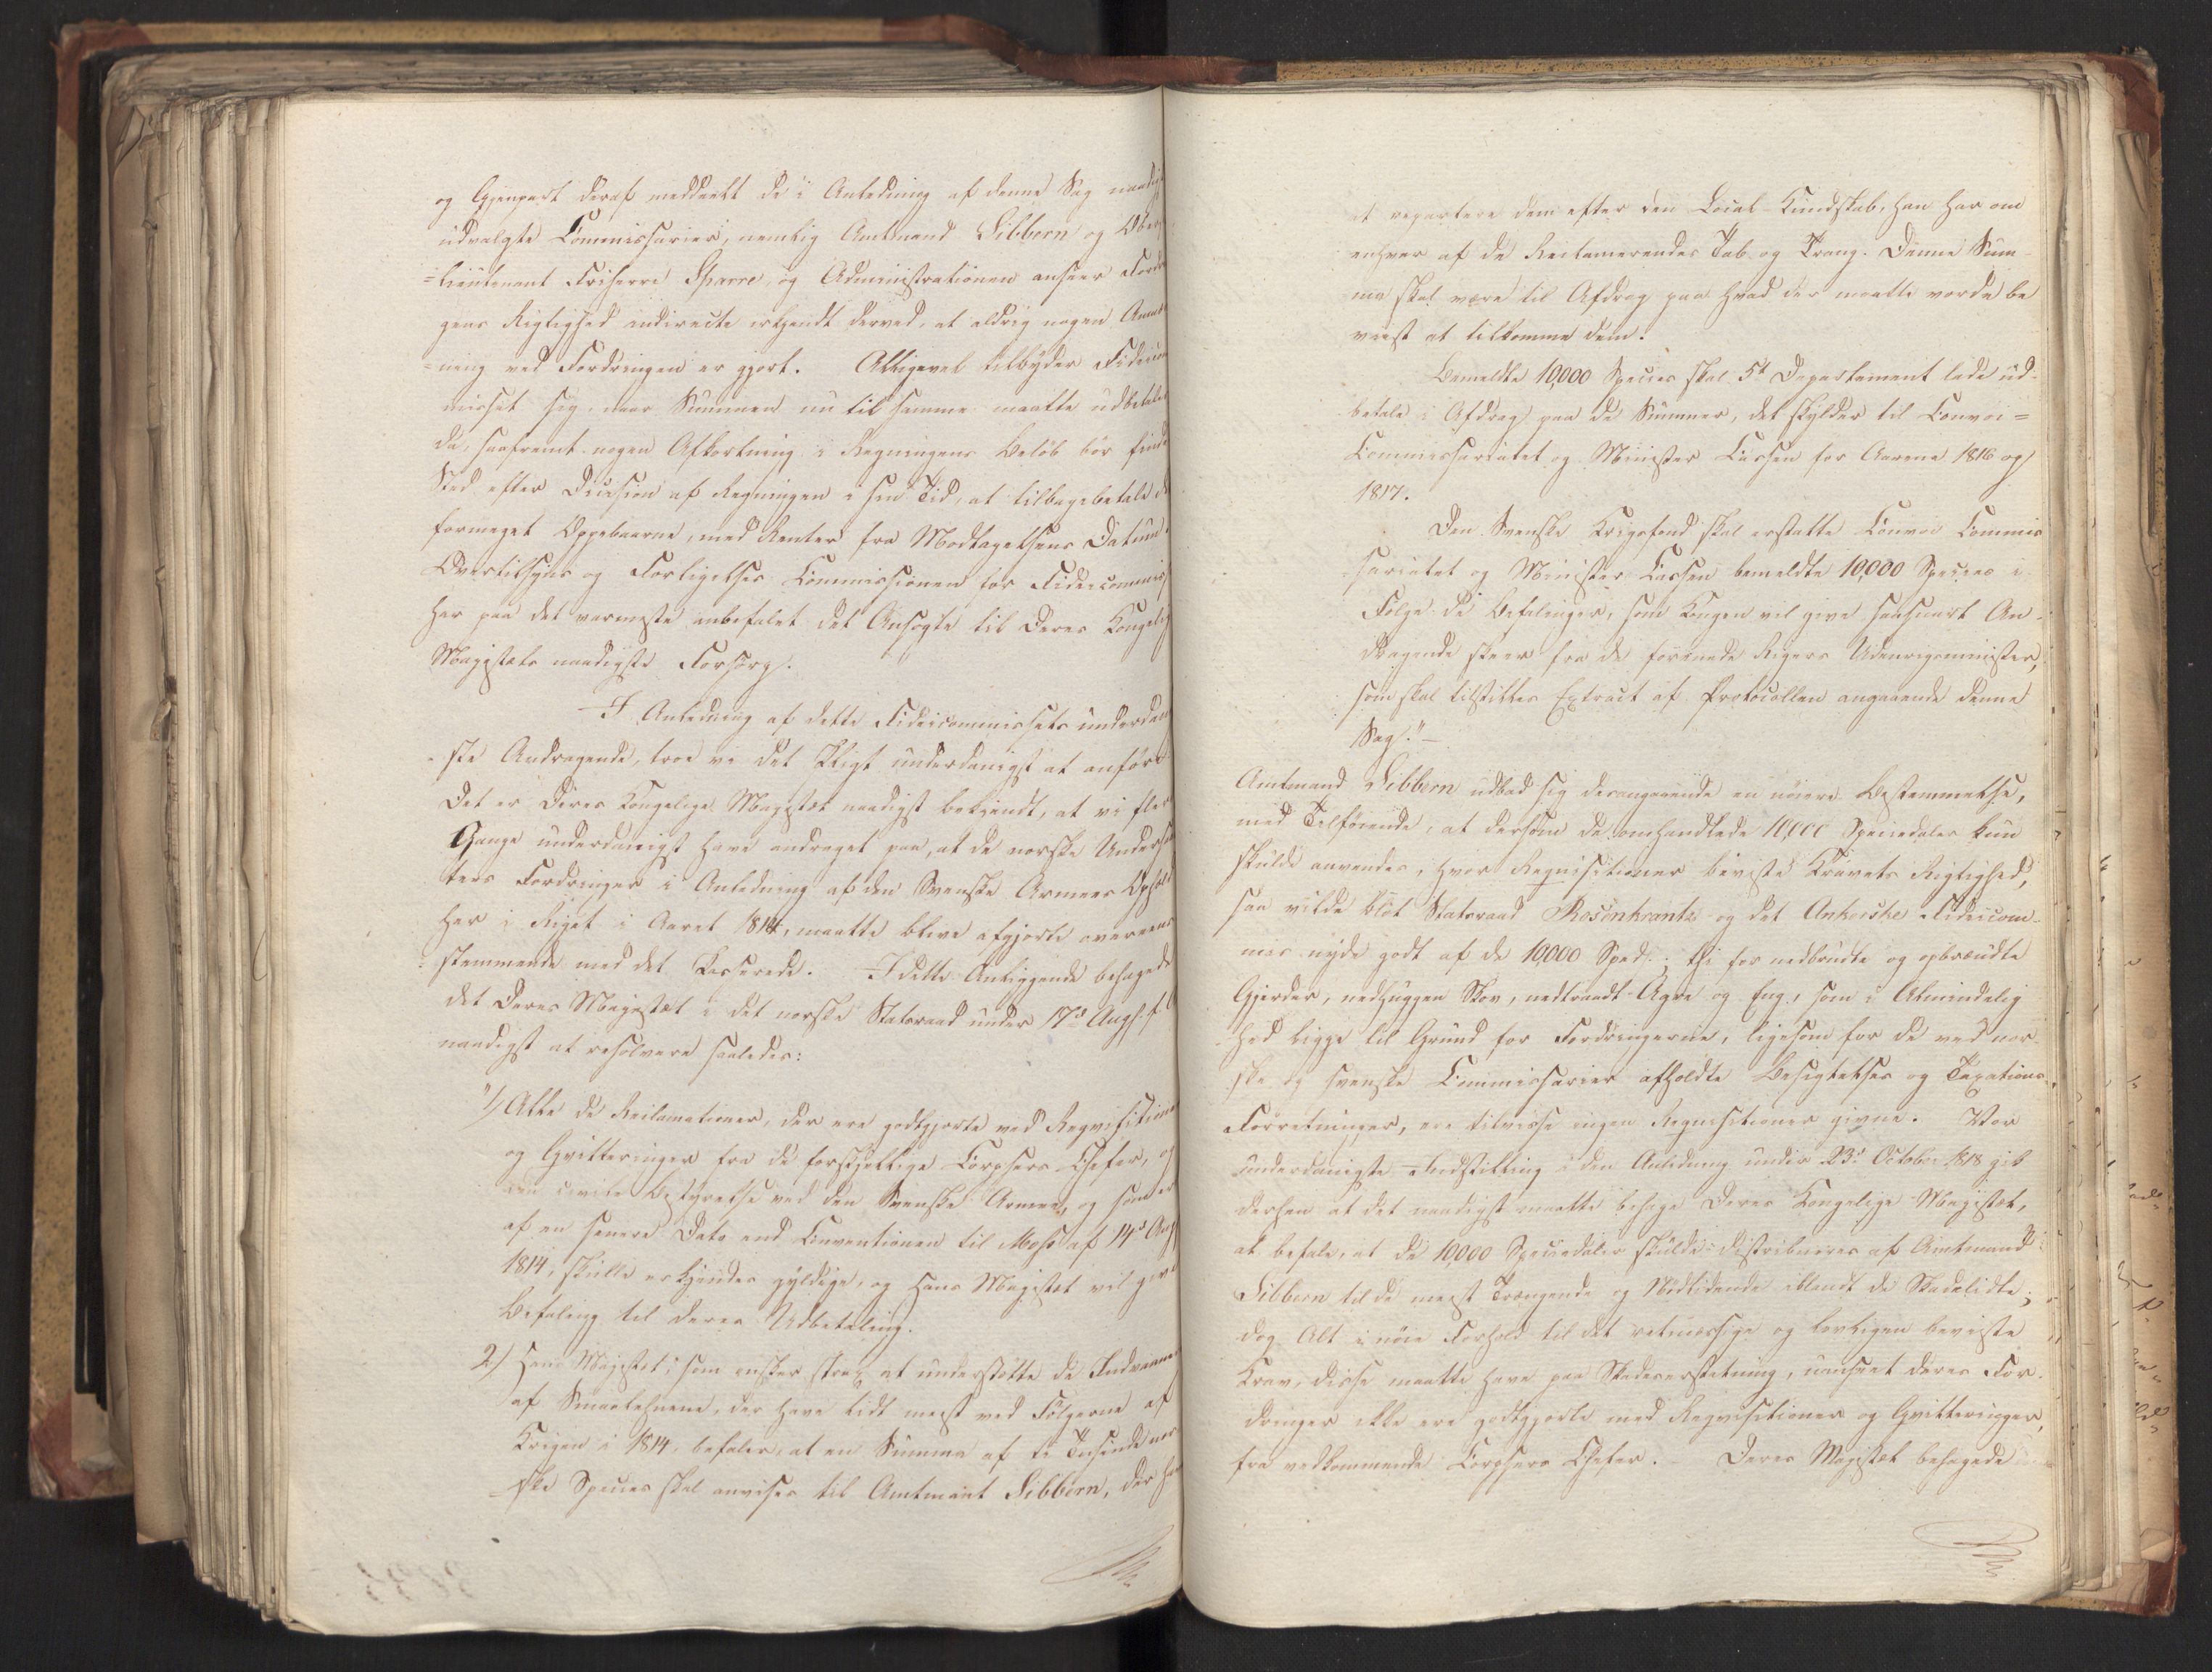 og Gjenpart deraf meddeelt de i Anledning af denne Sag naadigst
udvalgte Commissarier, nemlig Amtmand Sibbern og Oberst
=lieutenant Friherre Sparre, og Administrationen anseer Fordrin
gens Rigtighed indirecte erkjendt derved, at aldrig nogen Anmærk
=ning ved Fordringen er gjort. Alligevel tilbyder Fideicom
misset sig, naar Summen nu til samme maatte udbetales
da, saafremt nogen Afkortning i Regningens Beløb bør finde
Sted efter Decision af Regningen i sin Tid, at tilbagebetale det
formeget Oppebaarne, med Renter fra Modtagelsens Datum.
Overtilsyns og Forligelses Commissionen for Fideicommisset
har paa det varmeste anbefalet det Ansøgte til Deres Kongelige
Majestæts naadigste Forsorg.
I Anledning af dette Fideicommissets underdanig
=ste Andragende, troe vi det Pligt underdanigst at anføre
Det er Deres Kongelige Majestæt naadigst bekjendt, at vi flere
Gange underdanigst have andraget paa, at de norske Undersaat
ters Fordringer i Anledning af den Svenske Armees Ophold
her i Riget i Aaret 1814, maatte blive afgjorte overeens
=stemmende med det Passerede. I dette Anliggende behagede
det Deres Majestæt i det norske Statsraad under 17de Augs. f. A.
naadigst at resolvere saaledes:
"1) Alle de Reclamationer, der ere godtgjorte ved Reqvisitioner
og Qvitteringer fra de forskjellige Corpsers Chefer, og
den civile Bestyrelse ved den Svenske Armee, og som er
af en senere Dato end Conventionen til Moss af 14de Aug.
1814, skulle erkjendes gyldige, og Hans Majestæt vil give
Befaling til deres Udbetaling.
2) Hans Majestæt, som ønsker strax at understøtte de Indvaanere
af Smaalehnene, der have lidt meest ved Følgerne af
Krigen i 1814, befaler, at en Summa af ti Tusinde nor
=ske Species skal anvises til Amtmant Sibbern, der har
at repartere dem efter den Local-Kundskab, han har om
enhver af de Reclamerendes Tab og Trang. Denne Sum-
ma skal være til Afdrag paa hvad der maatte vorde be
viist at tilkomme dem.
Bemeldte 10,000 Species skal 5te Departement lade ud-
betale i Afdrag paa de Summer, det skylder til Convoi=
Commissariatet og Minister Cassen for Aarene 1816 og
1817.
Den Svenske Krigsfond skal erstatte Convoi Commis
sariatet og Minister Cassen bemeldte 10,000 Species i
Følge de Befalinger, som Kongen vil give saasnart An-
dragende skeer fra de forenede Rigers Udenrigsminister,
som skal tilstilles Extract af Protocollen angaaende denne
Sag." –
Amtmand Sibbern udbad sig desangaaende en nøiere Bestemmelse,
med Tilføiende, at dersom de omhandlede 10,000 Speciedaler kun
skulde anvendes, hvor Requisitioner beviste Kravets Rigtighed,
saa vilde blot Statsraad Rosenkrantz og det Ankerske Fideicom-
mis nyde godt af de 10,000 Spd.; thi for nedbrudte og opbrændte
Gjerder, nedhuggen Skov, nedtraadt Agre og Eng, som i Almindelig
hed ligge til Grund for Fordringerne, ligesom for de ved nor-
ske og svenske Commissarier afholdte Besigtelses og Taxations-
Forretninger, ere tilvisse ingen Requisitioner givne. Vor
underdanigste Indstilling i den Anledning under 23de October 1818 gik
derhen at det naadigst maatte behage Deres Kongelige Majestæt,
at befale, at de 10,000 Speciedaler skulde distribueres af Amtmand
Sibbern til de meest Trængende og Nødlidende iblandt de Skadelidte;
dog Alt i nøie Forhold til det retmæssige og lovligen beviste
Krav, disse maatte have paa Skadeserstatning, uanseet deres For-
dringer ikke ere godtgjorte med Reqvisitioner og Qvitteringer,
fra vedkommende Corpsers Chefer. – Deres Majestæt behagede